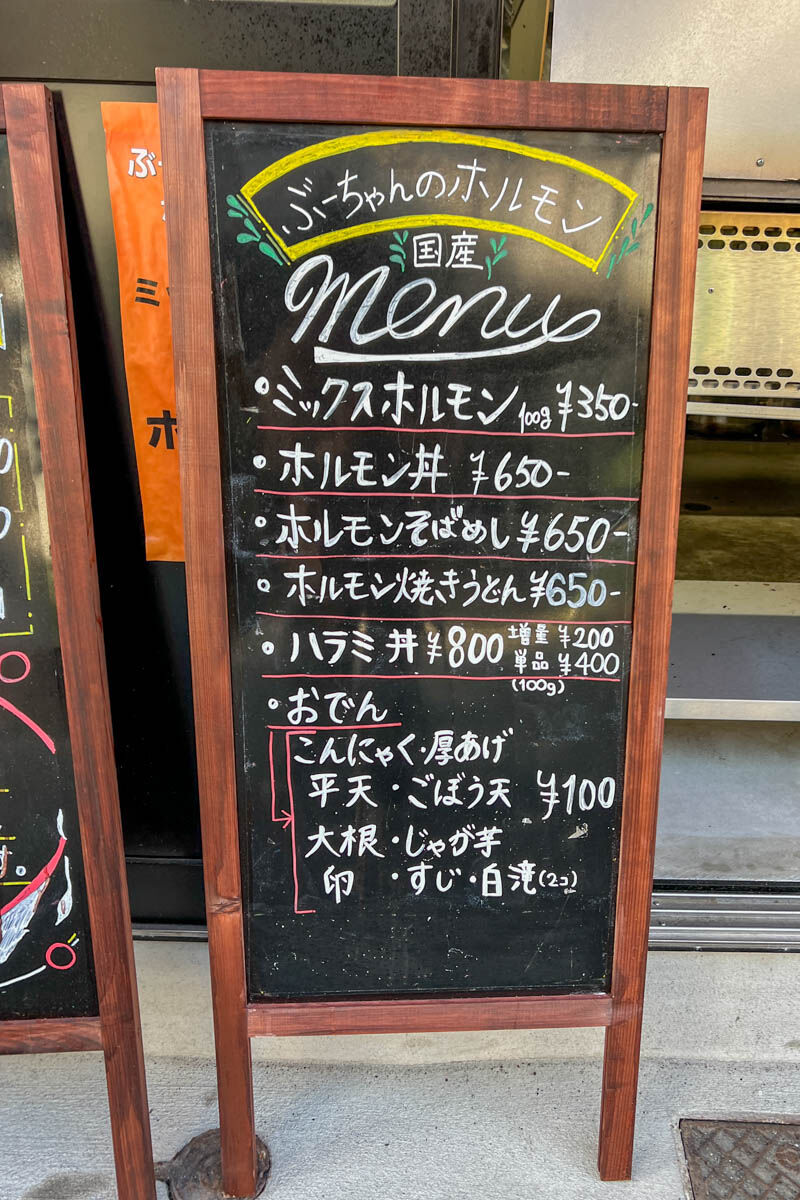 ぶーちゃんのホルモン
国産
menu
・ミックスホルモン 100g ¥350-
・ホルモン丼 ¥650-
・ホルモンそばめし ¥650-
・ホルモン焼きうどん ¥650-
・ハラミ丼 ¥800 増量 ¥200
単品 ¥400
(100g)
・おでん
こんにゃく・厚あげ
平天・ごぼう天 ¥100
大根・じゃが芋
卵・すじ・白滝(2コ)
ぶー
ミ
ホ